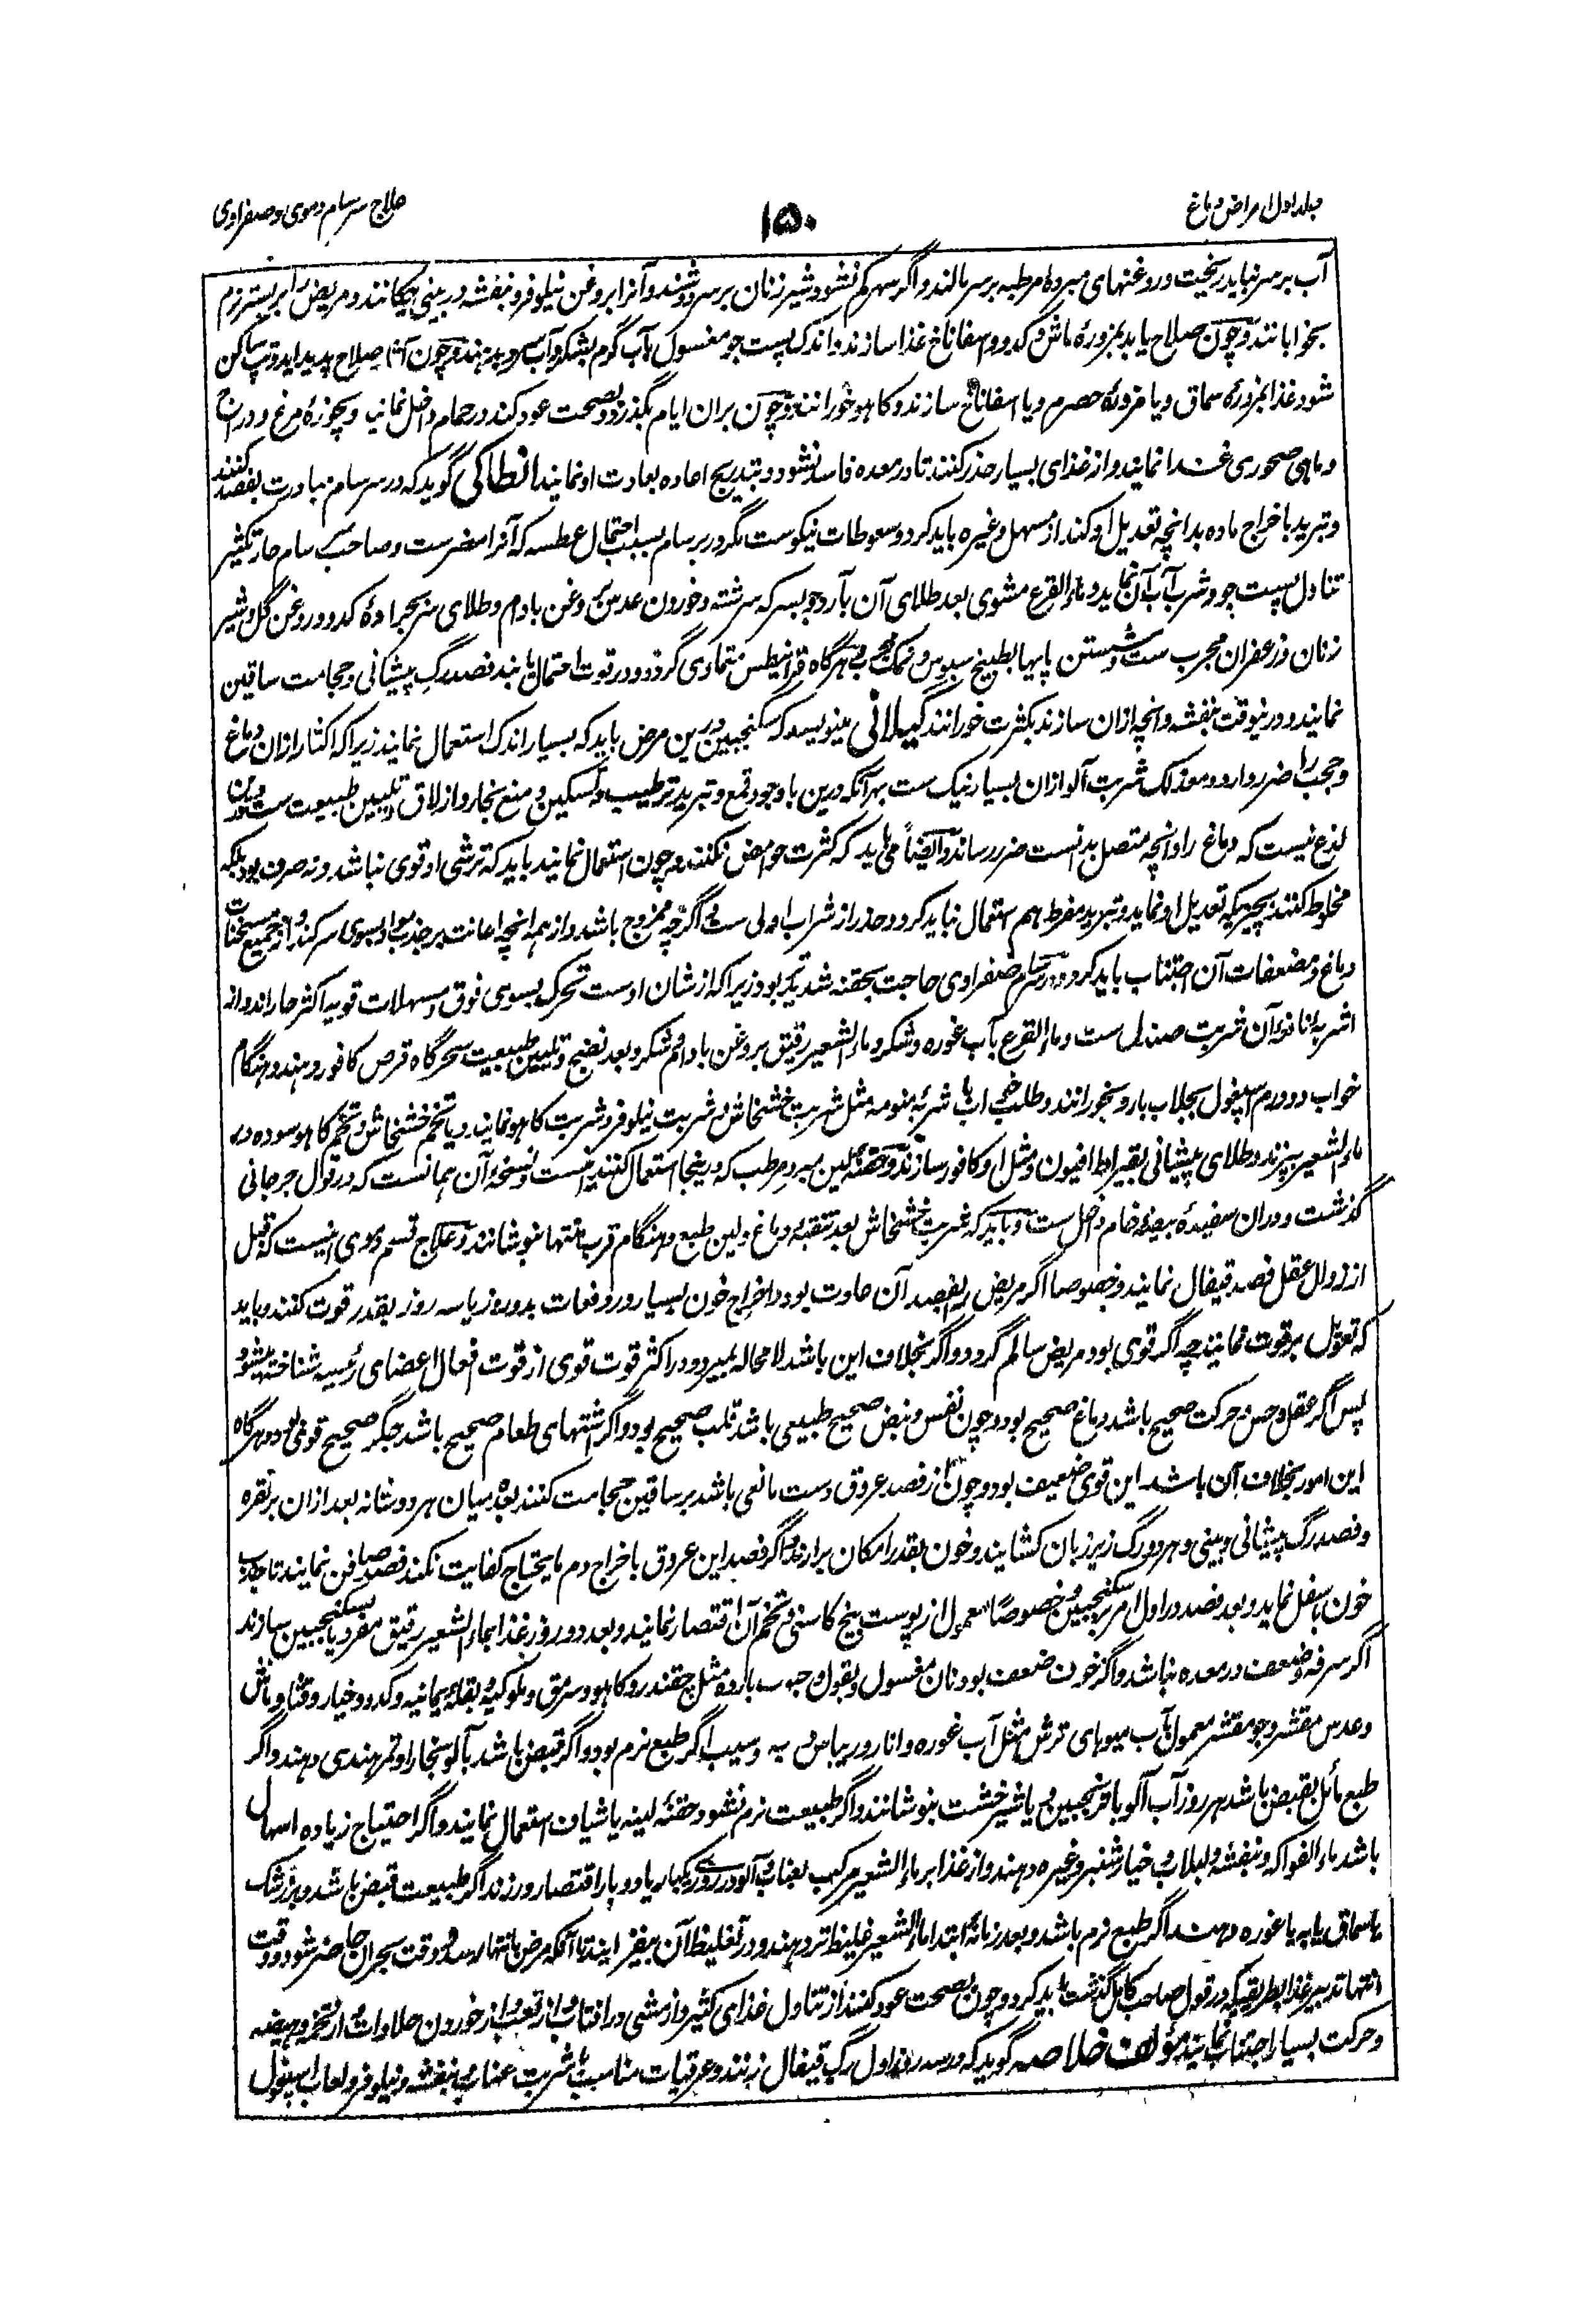 جلد اول امراض دماغ
۱۵۰
علاج سرسام دموی و صفراوی
آب بر سر نباید ریخت و روغنهای مبرده مرطبه بر سر مالند و اگر سهر کم نشود شیر زنان بر سر دوشند و آنرا بروغن نیلوفر و بنفشه در بینی چکانند و مریض را بر بستر نرم
بخوابانند و چون صلاح یابد بمزوره ماش و کدو و اسفاناخ غذا سازند و اندک پست جو مغسول بآب گرم بشکر و آب سرد بدهند و چون آثار صلاح پدید آید و تپ ساکن
شود غذا بمزوره سماق و یا مزوره حصرم و یا اسفاناخ سازند و کاهو خورانند و چون بران ایام بگذرد و بصحت عود کند در حمام داخل نمایند و بچوزه مرغ و دراج
و ماهی صخوری غذا نمایند و از غذای بسیار حذر کنند تا در معده فاسد نشود و بتدریج اعاده بعادت او نمایند انطاکی گوید که در سرسام مبادرت بفصد کنند
و تبرید با خراج ماده بدانچه تعدیل او کند از مسهل وغیره باید کرد و سعوطات نیکوست مگر در برسام بسبب احتمال عطسه که آنرا مضرست و صاحب سرسام حار تکثیر
تناول پست جو و شرب آب آن نماید و ماء القرع مشوی بعد طلای آن بآرد جو بسرکه سرشته و خوردن عدس و روغن بادام و طلای سر بجراده کدو و روغن گل و شیر
زنان و زعفران مجرب ست و شستن پایها بطبیخ سبوس و نمک مجرب هرگاه قرانیطس متمادی گردد و در قوت احتمال یابند فصد رگ پیشانی و حجامت ساقین
نمایند و درینوقت بنفشه و آنچه ازان سازند بکثرت خورانند گیلانی مینویسد که سکنجبین درین مرض باید که بسیار اندک استعمال نمایند زیرا که اکثار ازان دماغ
و حجب را ضرر دارد و معذلک شربت آلو ازان بسیار نیک ست بهر آنکه درین باوجود قمع و تبرید ترطیب و تسکین و منع بخار و ازلاق و تلیین طبیعت ست و درینها
لذع نیست که دماغ را و آنچه متصل بدانست ضرر رساند و ایضاً می باید که کثرت حوامض نکنند و چون استعمال نمایند باید که ترشی او قوی نباشد و نه صرف بود بلکه
مخلوط کنند بچیزیکه تعدیل او نماید و تبرید مفرط هم استعمال نباید کرد و حذر از شراب اولی ست و اگرچه ممزوج باشد و از هر آنچه اعانت بر جذب مواد بسوی سر کند و از جمیع مسخنات
دماغ و مضعفات آن اجتناب باید کرد و در سرسام صفراوی حاجت بحقنه شدیدتر بود زیرا که از شان اوست تحرک بسوی فوق و مسهلات قویه اکثر حار اند و انه
اشربه نافعه آن شربت صندل ست و ماء القرع بآب غوره و شکر و ماء الشعیر رقیق بروغن بادام و شکر و بعد نضج و تلیین طبیعت سحرگاه قرص کافور دهند و هنگام
خواب دو درم اسپغول بجلاب بارد بخورانند و طلب خواب باشربه منومه مثل شربت خشخاش و شربت نیلوفر و شربت کاهو نمایند و یا تخم خشخاش و تخم کاهو سوده در
ماء الشعیر بپزند و طلای پیشانی بقیراط افیون و مثل او کافور سازند و حقنه لین مبرد مرطب که درینجا استعمال کنند اینست و نسخه آن همانست که در قول جرجانی
گذشت و دران سفیده بیضه خام داخل ست و باید که شربت خشخاش بعد تنقیه دماغ و لین طبع و هنگام قرب منتها بنوشانند و علاج قسم دموی اینست که قبل
از زوال عقل فصد قیفال نمایند و خصوصا اگر مریض را بفصد آن عادت بود و اخراج خون بسیار در دفعات بدو روز یا سه روز بقدر قوت کنند و باید
که تعویل بر قوت نمایند چه اگر قوی بود مریض سالم گردد و اگر بخلاف این باشد لا محاله بمیرد و در اکثر قوت قوی از قوت افعال اعضای رئیسه شناخته میشود
پس اگر عقل و حس و حرکت صحیح باشد دماغ صحیح بود و چون نفس و نبض صحیح طبیعی باشد قلب صحیح بود و اگر اشتهای طعام صحیح باشد جگر صحیح قوی بود و هرگاه
این امور بخلاف آن باشد این قوی ضعیف بود و چون از فصد عروق دست مانعی باشد بر ساقین حجامت کنند بعده میان هر دو شانه بعد ازان بر نقره
و فصد رگ پیشانی و بینی و هر دو رگ زیر زبان کشایند و خون بقدر امکان برارند و اگر فصد این عروق با خراج دم ما یحتاج کفایت نکند فصد صافن نمایند تا جذب
خون باسفل نماید و بعد فصد در اول امر بر سکنجبین و خصوصاً معمول از پوست بیخ کاسنی و تخم آن اقتصار نمایند و بعد دو روز غذا بماء الشعیر رقیق مفرد یا بسکنجبین سازند
اگر سرفه و ضعف در معده نباشد و اگر خوف ضعف بود نان مغسول و بقول و حبوب بارده مثل چقندر و کاهو و سرمق و ملوکیه و بقله یمانیه و کدو و خیار و قثا و ماش
و عدس مقشر و جو مقشر معمول بآب میوهای ترش مثل آب غوره و انار و ریباس و به و سیب اگر طبع نرم بود و اگر قبض باشد بآلو بخارا و تمر هندی دهند و اگر
طبع مائل بقبض باشد هر روز آب آلو با ترنجبین و یا شیرخشت بنوشانند و اگر طبیعت نرم نشود حقنه لینه یا شیاف استعمال نمایند و اگر احتیاج زیاده اسهال
باشد ماء الفواکه و بنفشه و لبلاب و خیار شنبر وغیره دهند و از غذا بر ماء الشعیر مرکب بعناب و آلو در روزی یکبار یا دوبار اقتصار ورزند اگر طبیعت قبض باشد و بزرشک
یا سماق یا به یا غوره دهند اگر طبع نرم باشد و بعد زمانه ابتدا ماء الشعیر غلیظ تر دهند و در تغلیظ آن بیفزایند تا آنکه مرض بانتها رسد و وقت بحران حاضر شود و وقت
انتها تدبیر غذا بطریقیکه در قول صاحب کامل گذشت باید کرد و چون بصحت عود کنند از تناول غذای کثیر و از مشی در افتاب و از تعب و از خوردن حلاوات و از تخمه و هیضه
و حرکت بسیار اجتناب نمایند مؤلف خلاصه گوید که در سه روز اول رگ قیفال زنند و عرقیات مناسب با شربت عناب و بنفشه و نیلوفر و لعاب اسپغول